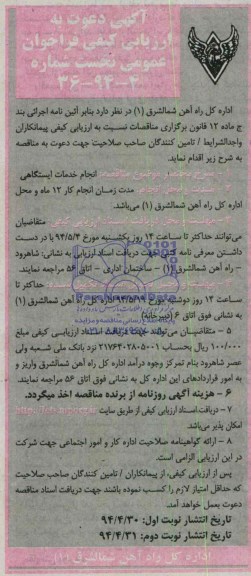 آگهی دعوت به
ارزیابی کیفی فراخوان
عمومی نخست شماره
۳۶-۹۴-۲۰
اداره کل راه آهن شمالشرق (۱) در نظر دارد بنابر آئین نامه اجرائی بند
ج ماده ۱۲ قانون برگزاری مناقصات نسبت به ارزیابی کیفی پیمانکاران
واجدالشرایط / تامین کنندگان صاحب صلاحیت جهت دعوت به مناقصه
به شرح زیر اقدام نماید.
انجام خدمات ایستگاهی
مدت زمان انجام کار ۱۲ ماه و محل
اداره کل راه آهن شمالشرق (۱) می‌باشد.
متقاضیان
می‌توانند حداکثر تا ساعت ۱۴ روز یکشنبه مورخ ۹۴/۵/۴ با در دست
داشتن معرفی نامه کتبی جهت دریافت اسناد ارزیابی به نشانی: شاهرود
– راه آهن شمالشرق (۱) – ساختمان اداری – اتاق ۵۶ مراجعه نمایند.
حداکثر تا
ساعت ۱۴ روز دوشنبه مورخ ۹۴/۵/۱۹ اداره کل راه آهن شمالشرق (۱)
به نشانی فوق اتاق ۶ (دبیرخانه)
۵ – متقاضیان می‌توانند جهت دریافت اسناد ارزیابی کیفی مبلغ
۱۰۰/۰۰۰ ریال بحساب ۲۱۷۶۴۰۲۸۰۵۰۰۱ نزد بانک ملی شعبه ولی
عصر شاهرود بنام تمرکز وجوه درآمد اداره کل راه آهن شمالشرق واریز و
به امور قراردادهای این اداره کل به نشانی فوق اتاق ۵۶ مراجعه نمایند.
۶ – هزینه آگهی روزنامه از برنده مناقصه اخذ میگردد.
۷ – دریافت اسناد ارزیابی کیفی از طریق سایت
امکان پذیر می‌باشد.
۸ – ارائه گواهینامه صلاحیت اداره کار و امور اجتماعی جهت شرکت
در این ارزیابی الزامی است.
پس از ارزیابی کیفی، از پیمانکاران / تامین کنندگان صاحب صلاحیت
که حداقل امتیاز لازم را کسب نموده باشند جهت دریافت اسناد مناقصه
دعوت بعمل خواهد آمد.
تاریخ انتشار نوبت اول: ۹۴/۴/۳۰
تاریخ انتشار نوبت دوم: ۹۴/۴/۳۱
اداره کل راه آهن شمالشرق (۱)